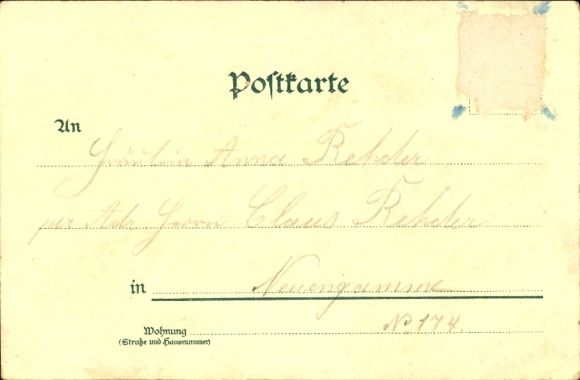 Postkarte
An
Fräulein Anna Rehder
per Adr. Herrn Claus Rehder
in Neuengamme
Wohnung No. 174.
(Straße und Hausnummer)